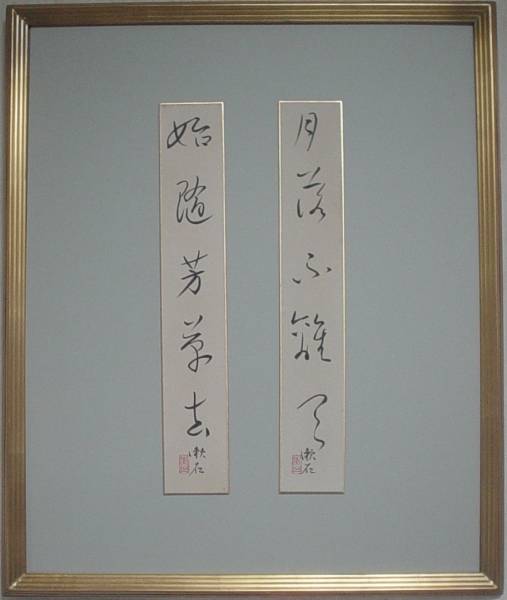 月落不離天
漱石
始随芳草去
漱石